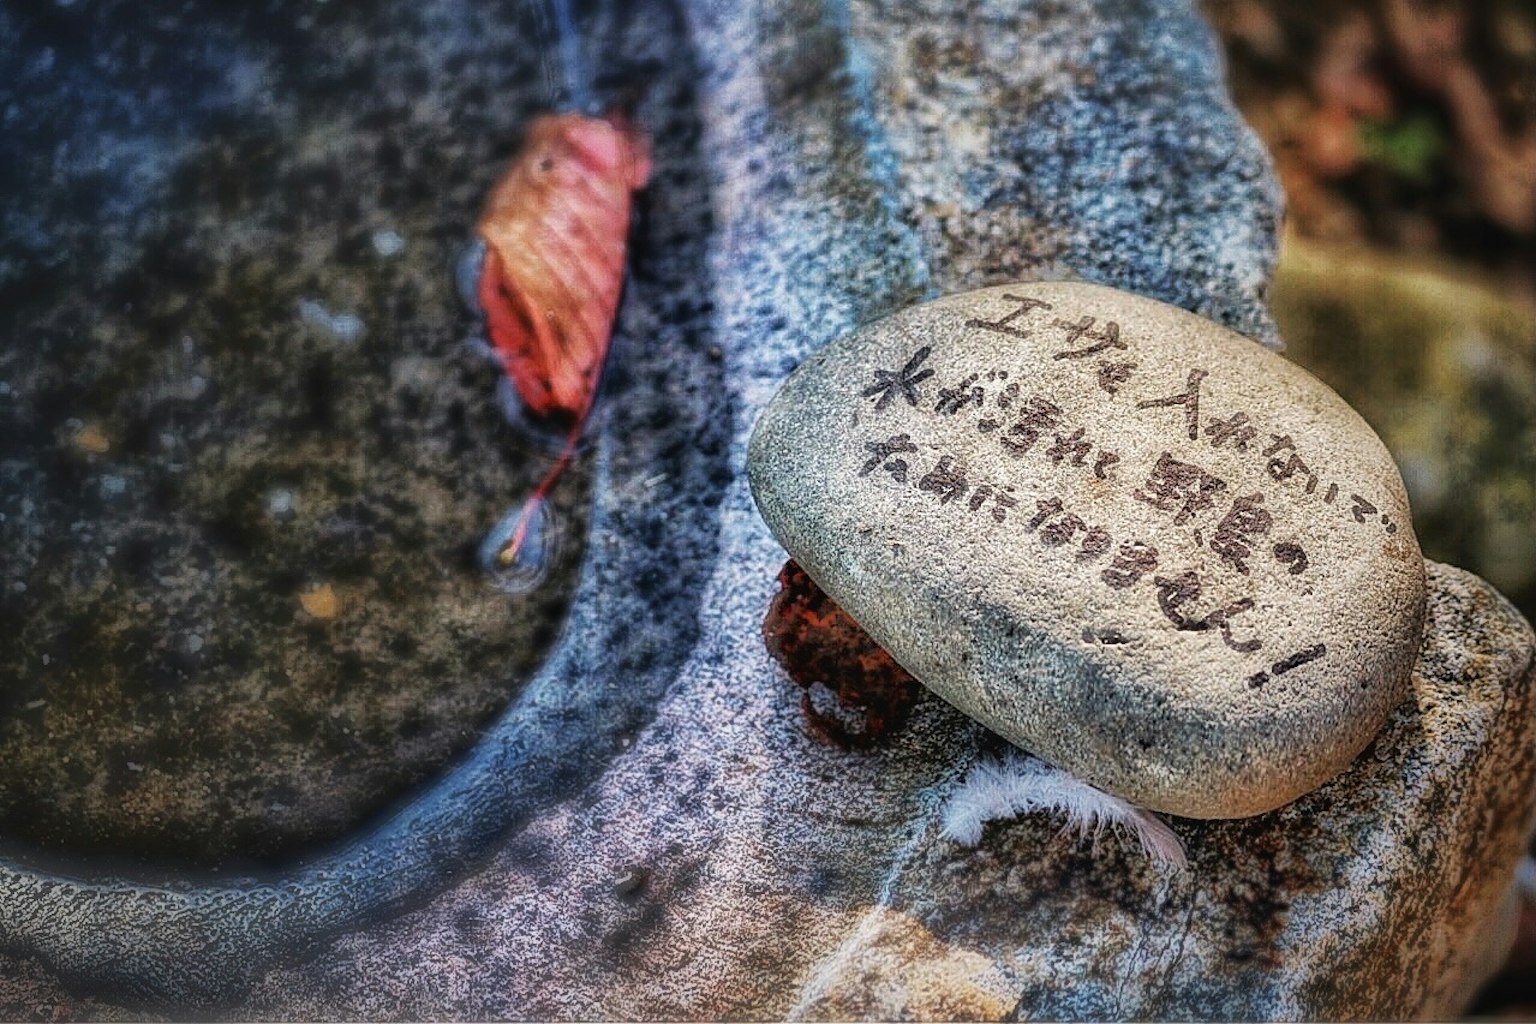 エサを入れないで
水が汚れて野鳥の
ためになりません!